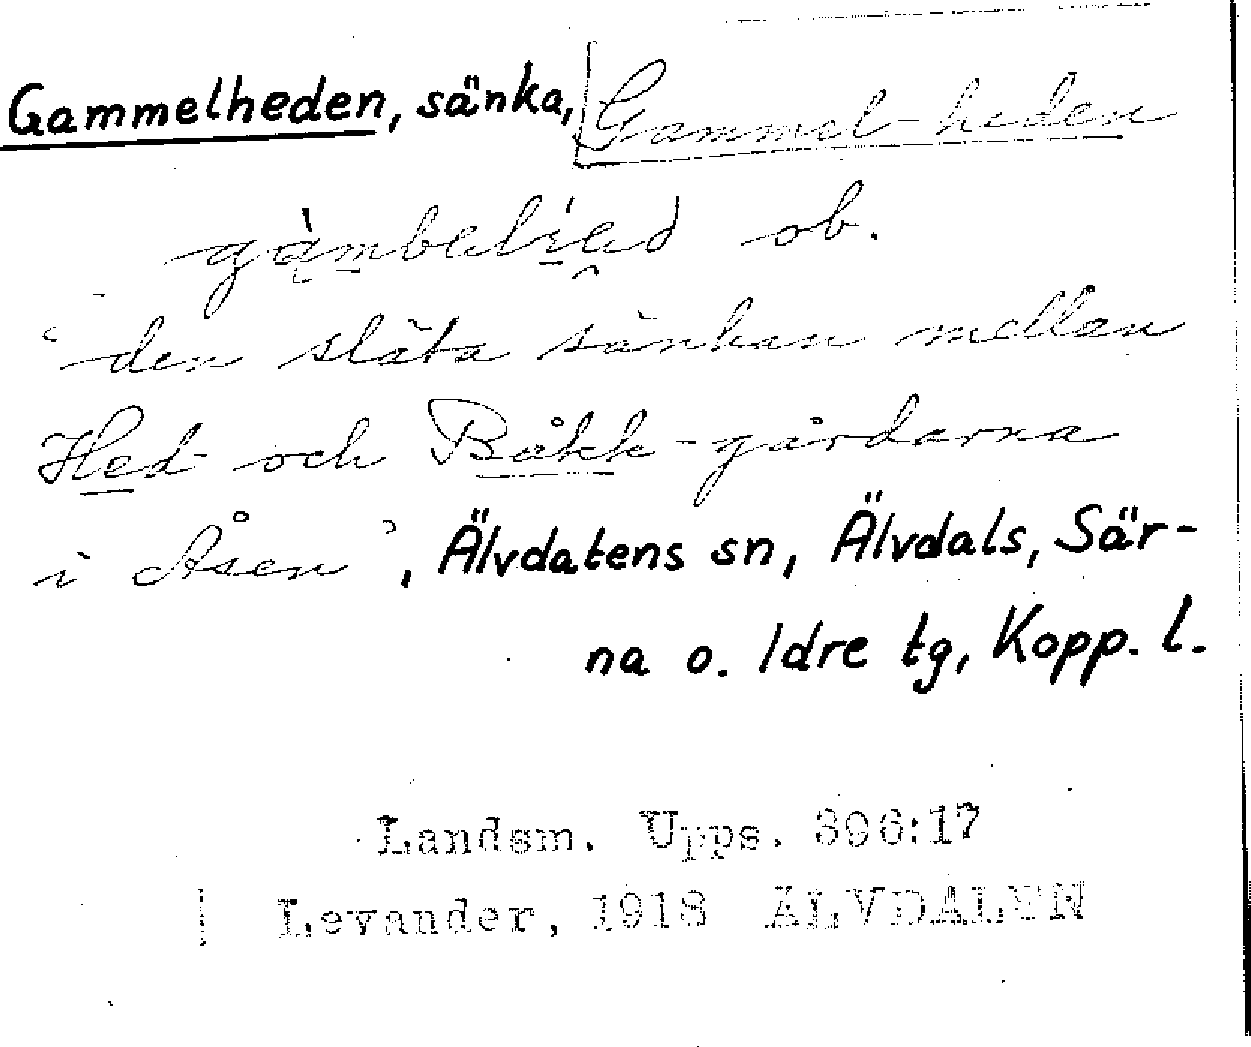 Gammelheden, sänka, Gammel-heden
gàmbelied ob.
"den släta sänkan mellan
Hed- och Båkk-gårdarna
i Åsen", Älvdalens sn, Älvdals, Sär-
na o. Idre tg, Kopp. l.
Landsm. Upps. 396:17
Levander, 1918 ÄLVDALEN